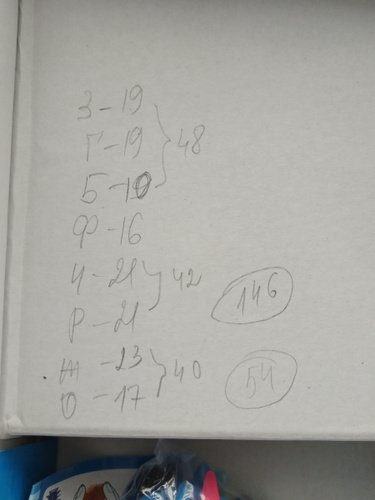 З-19
Г-19 } 48
Б-10
Ф-16
Ч-21 } 42
Р-21
Ж-23 } 40
О-17
146
54